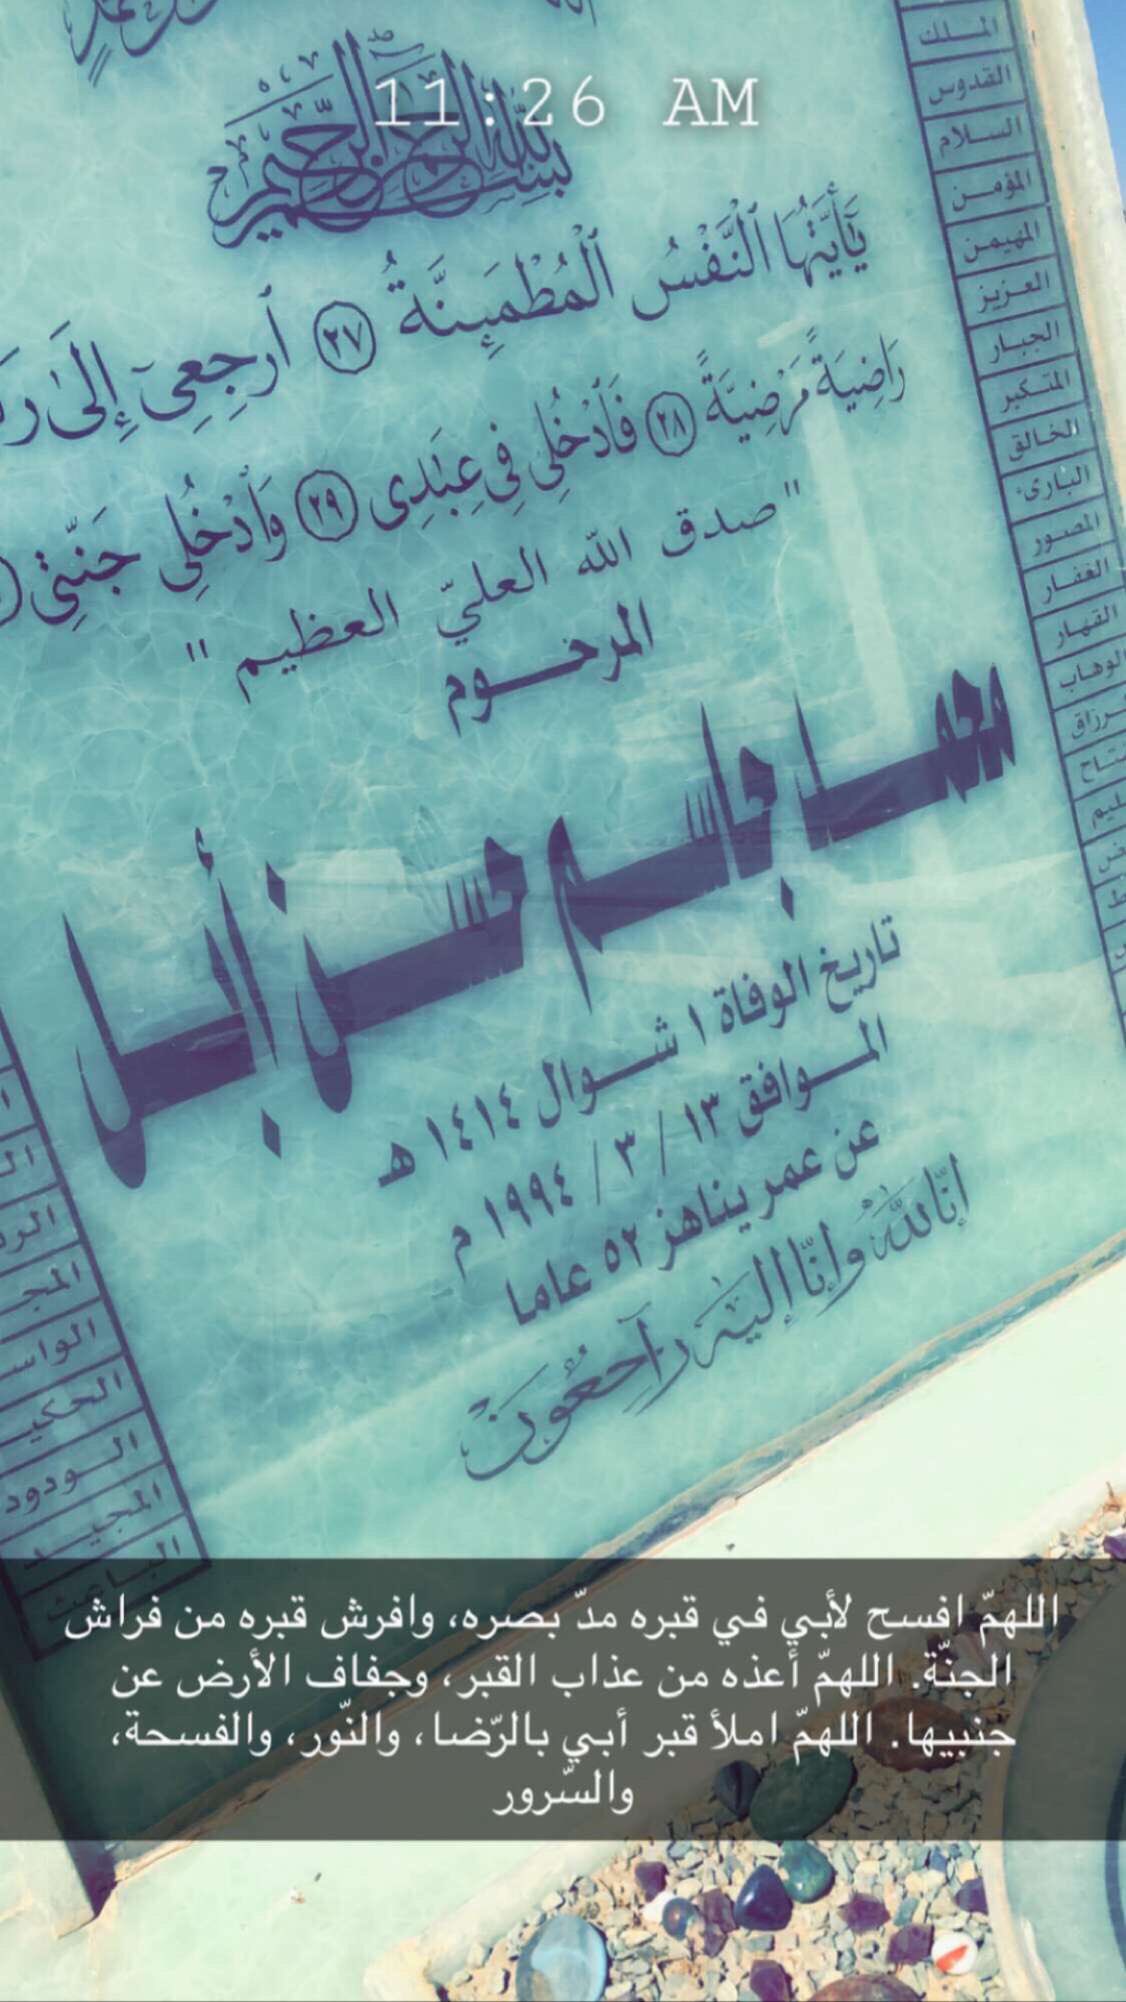 11:26 AM
بسم الله الرحمن الرحيم
يَٰٓأَيَّتُهَا ٱلنَّفْسُ ٱلْمُطْمَئِنَّةُ ٢٧ ٱرْجِعِىٓ إِلَىٰ
رَاضِيَةً مَّرْضِيَّةً ٢٨ فَٱدْخُلِى فِى عِبَٰدِى ٢٩ وَٱدْخُلِى جَنَّتِى
"صدق الله العليّ العظيم"
المرحوم
محمد جاسم حسن أبل
تاريخ الوفاة ١ شوال ١٤١٤ هـ
الموافق ١٣ / ٣ / ١٩٩٤ م
عن عمر يناهز ٥٢ عاما
إنّا لله وإنّا إليه راجعون
الملك
القدوس
السلام
المؤمن
المهيمن
العزيز
الجبار
المتكبر
الخالق
البارىء
المصور
الغفار
القهار
الودود
المجيد
الباعث
اللهمّ افسح لأبي في قبره مدّ بصره، وافرش قبره من فراش
الجنّة. اللهمّ أعذه من عذاب القبر، وجفاف الأرض عن
جنبيها. اللهمّ املأ قبر أبي بالرّضا، والنّور، والفسحة،
والسّرور